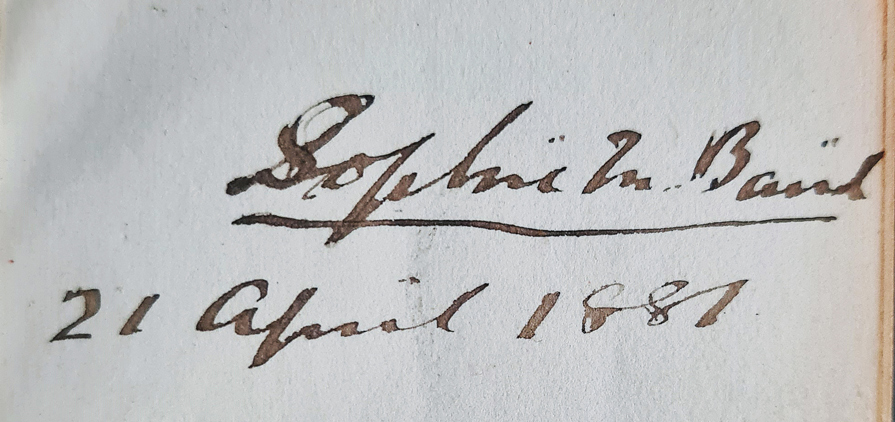 Sophie M. Baird
21 April 1881